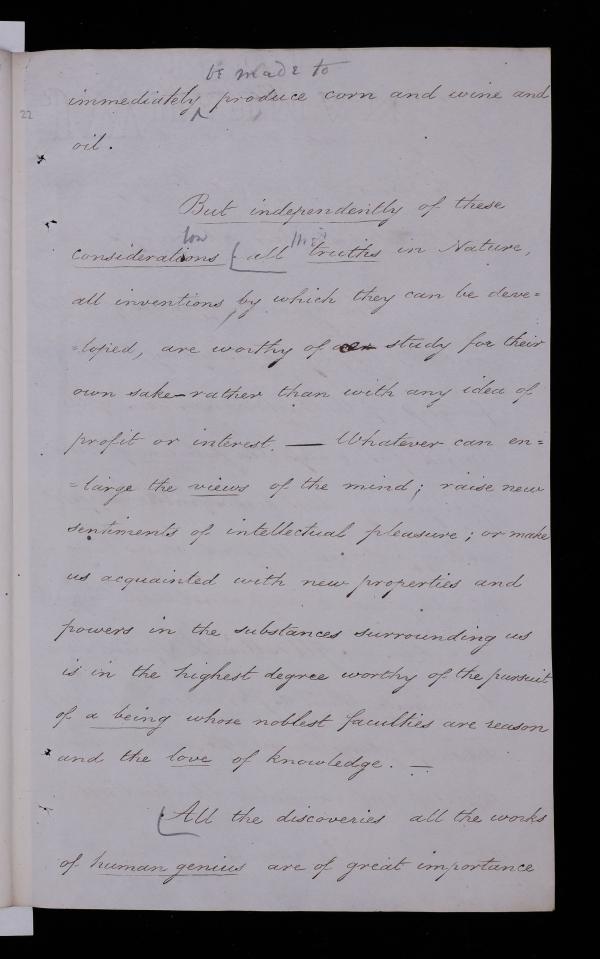 be made to
immediately ^ produce corn and wine and
22
oil.
But independently of these
low
considerations all truths in Nature,
all inventions by which they can be deve=
=loped, are worthy of study for their
own sake – rather than with any idea of
profit or interest. — Whatever can en=
=large the views of the mind; raise new
sentiments of intellectual pleasure; or make
us acquainted with new properties and
powers in the substances surrounding us
is in the highest degree worthy of the pursuit
of a being whose noblest faculties are reason
and the love of knowledge. —
All the discoveries all the works
of human genius are of great importance